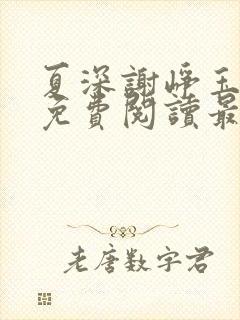 夏深謝崢玉
免費閱讀最
老唐数字君